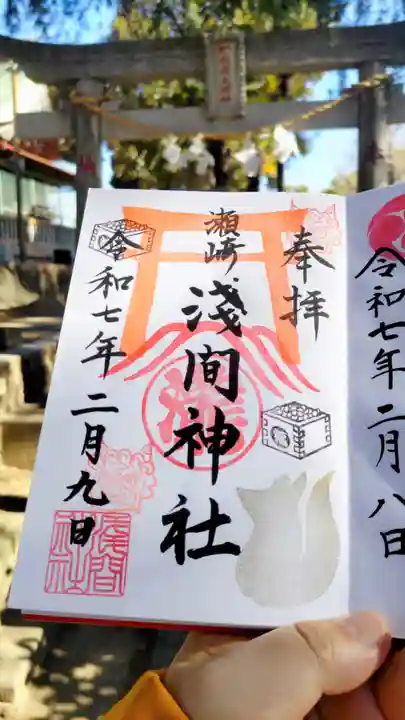 奉拝
瀬崎
淺間神社
令和七年二月九日
淺間
神社
令和七年二月八日